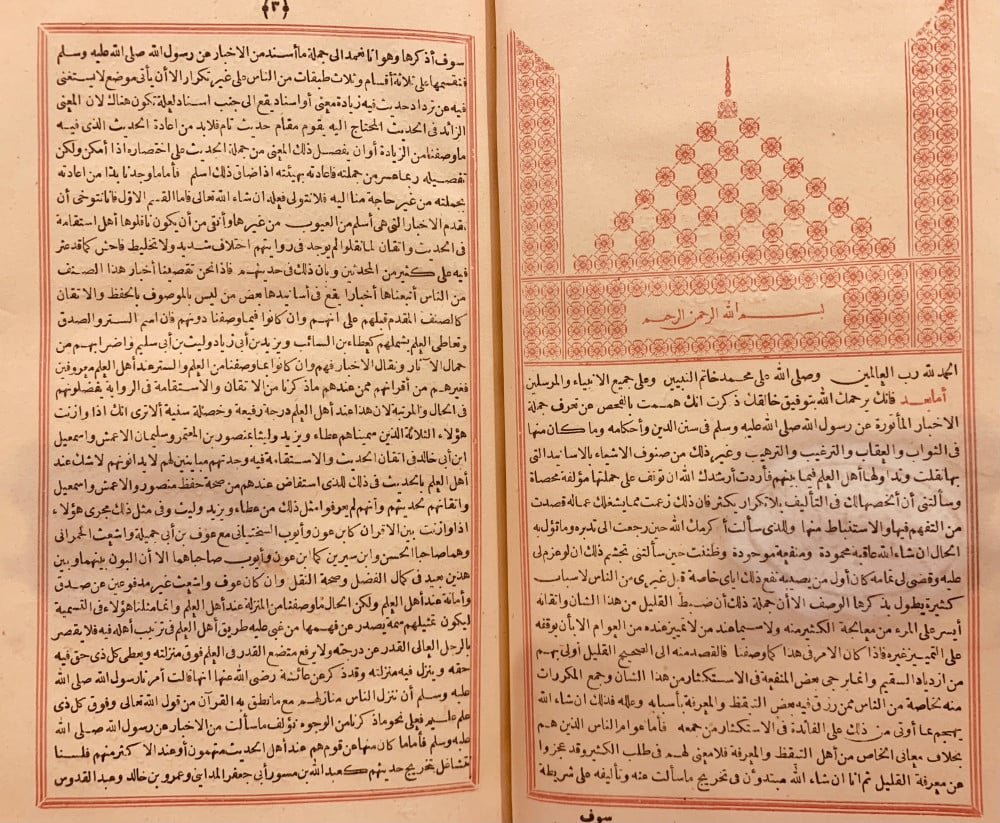 بسم الله الرحمن الرحيم
الحمد لله رب العالمين وصلى الله على محمد خاتم النبيين وعلى جميع الانبياء والمرسلين
أما بعد فانك يرحمك الله بتوفيق خالقك ذكرت انك هممت بالفحص عن تعرف جملة
الاخبار المأثورة عن رسول الله صلى الله عليه وسلم فى سنن الدين وأحكامه وما كان منها
فى الثواب والعقاب والترغيب والترهيب وغير ذلك من صنوف الاشياء بالاسانيد التى
بها نقلت وتداولها أهل العلم فيما بينهم فأردت أرشدك الله ان توقف على جملتها مؤلفة محصاة
وسألتنى أن ألخصها لك فى التأليف بلا تكرار يكثر فان ذلك زعمت مما يشغلك عما له قصدت
من التفهم فيها والاستنباط منها وللذى سألت أكرمك الله حين رجعت الى تدبره وما تؤل به
الحال ان شاء الله عاقبة محمودة ومنفعة موجودة وظننت حين سألتنى تجشم ذلك ان لو عزم لى
عليه وقضى لى تمامه كان أول من يصيبه نفع ذلك اياى خاصة قبل غيرى من الناس لاسباب
كثيرة يطول بذكرها الوصف الا أن جملة ذلك أن ضبط القليل من هذا الشان واتقانه
أيسر على المرء من معالجة الكثير منه ولا سيما عند من لا تمييز عنده من العوام الا بأن يوقفه
على التمييز غيره فاذا كان الامر فى هذا كما وصفنا فالقصد منه الى الصحيح القليل أولى بهم
من ازدياد السقيم وانما يرجى بعض المنفعة فى الاستكثار من هذا الشان وجمع المكررات
منه لخاصة من الناس ممن رزق فيه بعض التيقظ والمعرفة بأسبابه وعلله فذلك ان شاء الله
يهجم بما أوتى من ذلك على الفائدة فى الاستكثار من جمعه فأما عوام الناس الذين هم
بخلاف معانى الخاص من أهل التيقظ والمعرفة فلا معنى لهم فى طلب الكثير وقد عجزوا
عن معرفة القليل ثم انا ان شاء الله مبتدؤن فى تخريج ما سألت عنه وتأليفه على شريطة
سوف
﴿٣﴾
سوف أذكرها وهو انا نعمد الى جملة ما أسند من الاخبار عن رسول الله صلى الله عليه وسلم
فنقسمها على ثلاثة أقسام وثلاث طبقات من الناس على غير تكرار الا أن يأتى موضع لا يستغنى
فيه عن ترداد حديث فيه زيادة معنى أو اسناد يقع الى جنب اسناد لعلة تكون هناك لان المعنى
الزائد فى الحديث المحتاج اليه يقوم مقام حديث تام فلا بد من اعادة الحديث الذى فيه
ما وصفنا من الزيادة أو ان يفصل ذلك المعنى من جملة الحديث على اختصاره اذا أمكن ولكن
تفصيله ربما عسر من جملته فاعادته بهيئته اذا ضاق ذلك اسلم فأما ما وجدنا بدا من اعادته
بجملته من غير حاجة منا اليه فلا نتولى فعله ان شاء الله تعالى فاما القسم الاول فانا نتوخى أن
نقدم الاخبار التى هى أسلم من العيوب من غيرها وأنقى من أن يكون ناقلوها أهل استقامة
فى الحديث واتقان لما نقلوا لم يوجد فى روايتهم اختلاف شديد ولا تخليط فاحش كما قد عثر
فيه على كثير من المحدثين وبان ذلك فى حديثهم فاذا نحن تقصينا أخبار هذا الصنف
من الناس أتبعناها أخبارا يقع فى أسانيدها بعض من ليس بالموصوف بالحفظ والاتقان
كالصنف المقدم قبلهم على انهم وان كانوا فيما وصفنا دونهم فان اسم الستر والصدق
وتعاطى العلم يشملهم كعطاء بن السائب ويزيد بن أبى زياد وليث بن أبى سليم وأضرابهم من
حمال الآثار ونقال الاخبار فهم وان كانوا بما وصفنا من العلم والستر عند أهل العلم معروفين
فغيرهم من أقرانهم ممن عندهم ما ذكرنا من الاتقان والاستقامة فى الرواية يفضلونهم
فى الحال والمرتبة لان هذا عند أهل العلم درجة رفيعة وخصلة سنية ألا ترى انك اذا وازنت
هؤلاء الثلاثة الذين سميناهم عطاء ويزيد وليثا بمنصور بن المعتمر وسليمان الاعمش واسمعيل
ابن أبى خالد فى اتقان الحديث والاستقامة فيه وجدتهم مباينين لهم لا يدانونهم لا شك عند
أهل العلم بالحديث فى ذلك للذى استفاض عندهم من صحة حفظ منصور والاعمش واسمعيل
واتقانهم لحديثهم وأنهم لم يعرفوا مثل ذلك من عطاء ويزيد وليث وفى مثل ذلك مجرى هؤلاء
اذا وازنت بين الاقران كابن عون وأيوب السختيانى مع عوف بن أبى جميلة وأشعث الحمرانى
وهما صاحبا الحسن وابن سيرين كما ابن عون وأيوب صاحباهما الا أن البون بينهما وبين
هذين بعيد فى كمال الفضل وصحة النقل وان كان عوف وأشعث غير مدفوعين عن صدق
وأمانة عند أهل العلم ولكن الحال ما وصفنا من المنزلة عند أهل العلم وانما مثلنا هؤلاء فى التسمية
ليكون تمثيلهم سمة يصدر عن فهمها من غبى عليه طريق أهل العلم فى ترتيب أهله فيه فلا يقصر
بالرجل العالى القدر عن درجته ولا يرفع متضع القدر فى العلم فوق منزلته ويعطى كل ذى حق فيه
حقه وينزل فيه منزلته وقد ذكر عن عائشة رضى الله عنها انها قالت أمرنا رسول الله صلى الله
عليه وسلم أن ننزل الناس منازلهم مع ما نطق به القرآن من قول الله تعالى وفوق كل ذى
علم عليم فعلى نحو ما ذكرنا من الوجوه نؤلف ما سألت من الاخبار عن رسول الله صلى الله
عليه وسلم فأما ما كان منها عن قوم هم عند أهل الحديث متهمون أو عند الاكثر منهم فلسنا
نتشاغل بتخريج حديثهم كعبد الله بن مسور أبى جعفر المدائنى وعمرو بن خالد وعبد القدوس